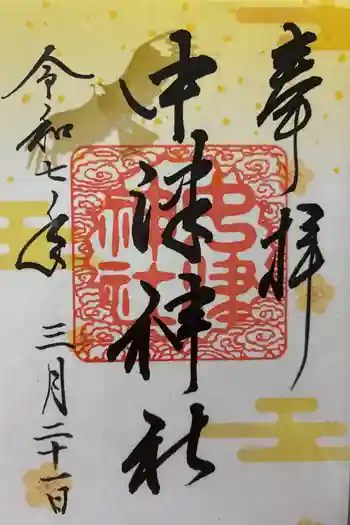 奉拝
中津神社
中津
神社
令和七年
三月二十一日